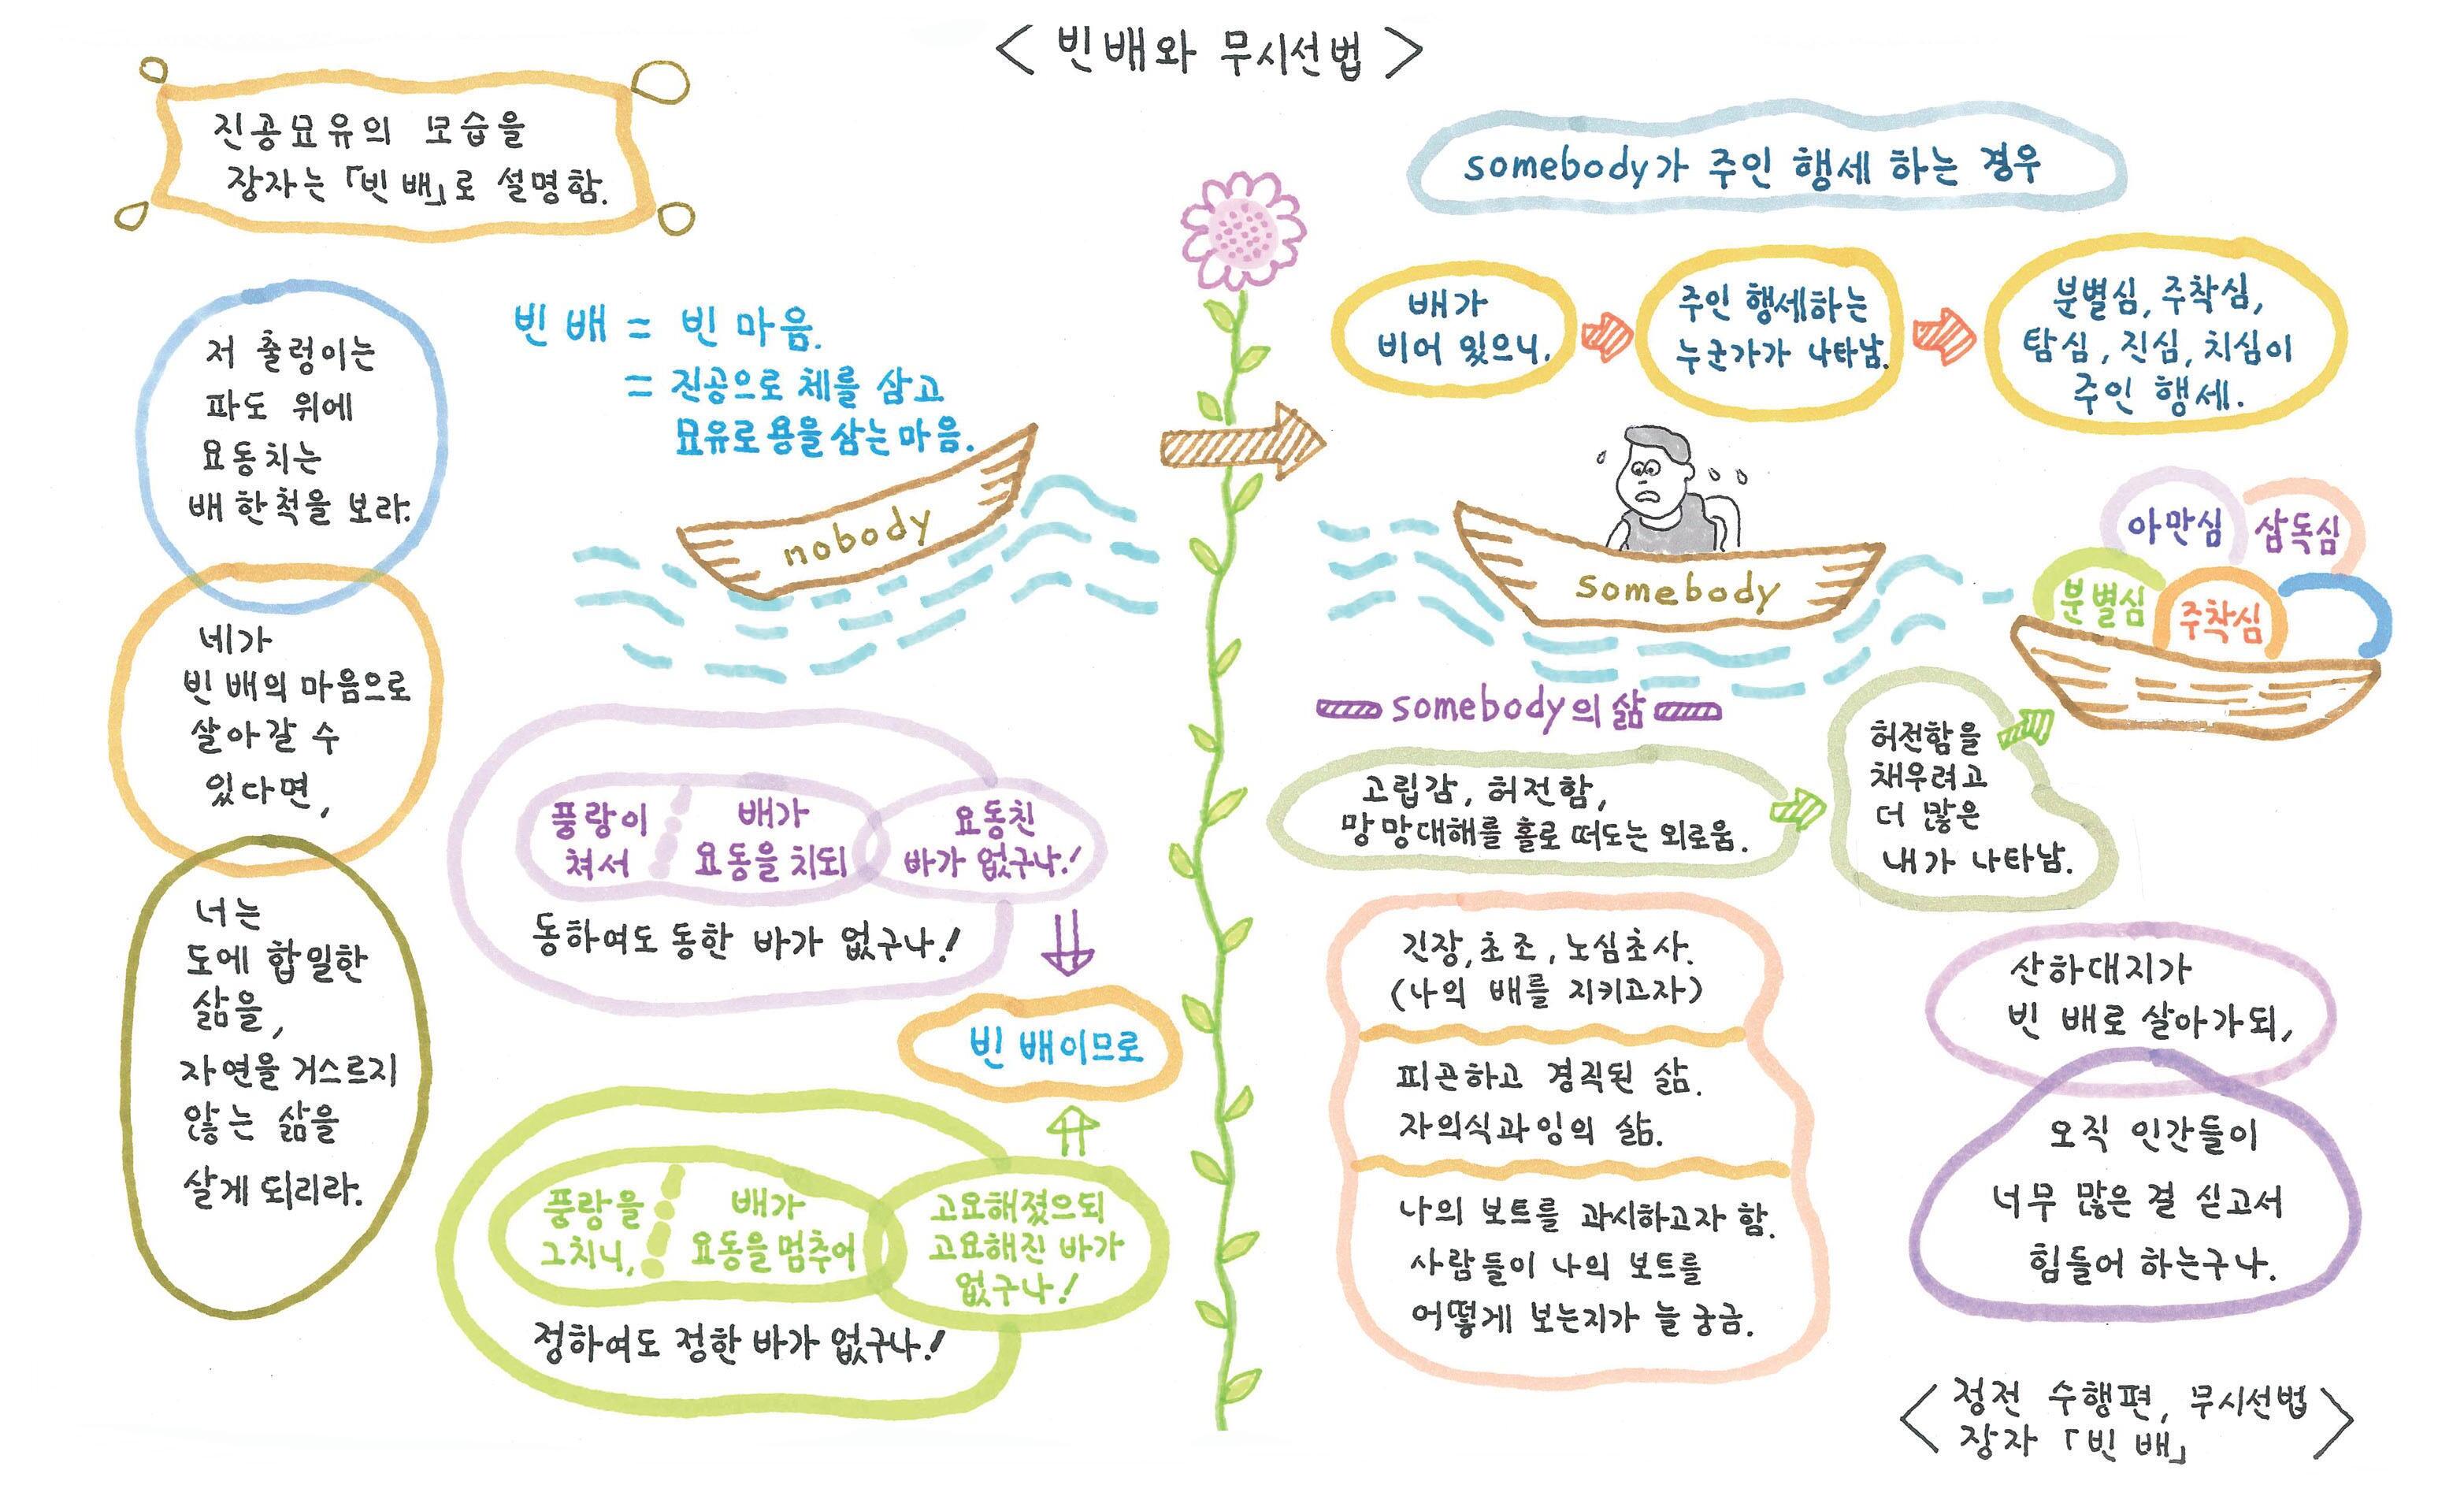 < 빈배와 무시선법 >
진공묘유의 모습을
장자는 「빈 배」로 설명함.
저 출렁이는
파도 위에
요동치는
배 한척을 보라.
네가
빈 배의 마음으로
살아갈 수
있다면,
너는
도에 합일한
삶을,
자연을 거스르지
않는 삶을
살게 되리라.
빈 배 = 빈 마음.
= 진공으로 체를 삼고
묘유로 용을 삼는 마음.
nobody
풍랑이
쳐서
배가
요동을 치되
요동친
바가 없구나!
동하여도 동한 바가 없구나!
빈 배이므로
풍랑을
그치니,
배가
요동을 멈추어
고요해졌으되
고요해진 바가
없구나!
정하여도 정한 바가 없구나!
somebody가 주인 행세 하는 경우
배가
비어 있으니.
주인 행세하는
누군가가 나타남.
분별심, 주착심,
탐심, 진심, 치심이
주인 행세.
somebody
아만심
삼독심
분별심
주착심
somebody의 삶
고립감, 허전함,
망망대해를 홀로 떠도는 외로움.
허전함을
채우려고
더 많은
내가 나타남.
긴장, 초조, 노심초사.
(나의 배를 지키고자)
피곤하고 경직된 삶.
자의식과잉의 삶.
나의 보트를 과시하고자 함.
사람들이 나의 보트를
어떻게 보는지가 늘 궁금.
산하대지가
빈 배로 살아가되,
오직 인간들이
너무 많은 걸 싣고서
힘들어 하는구나.
< 정전 수행편, 무시선법
장자 「빈 배」 >